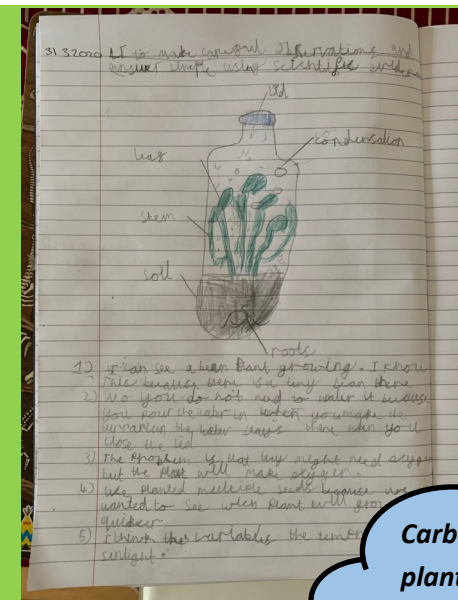 31.3.2020 LI to make careful observations and
answer simple using scientific
lid
condensation
leaf
stem
soil
roots
1) I can see a bean Plant growing. I know
This because there is a tiny bean there
2) No you do not need to water it because
you pour the water in when you make the
the water stays there when you
close the lid
3) The Problem is that bug might need oxygen
but the Plant will make oxygen.
4) We Planted multiple seeds because we
wanted to see wich Plant will grow
quicker
5) I think the variables the
sunlight.
Carb
plant